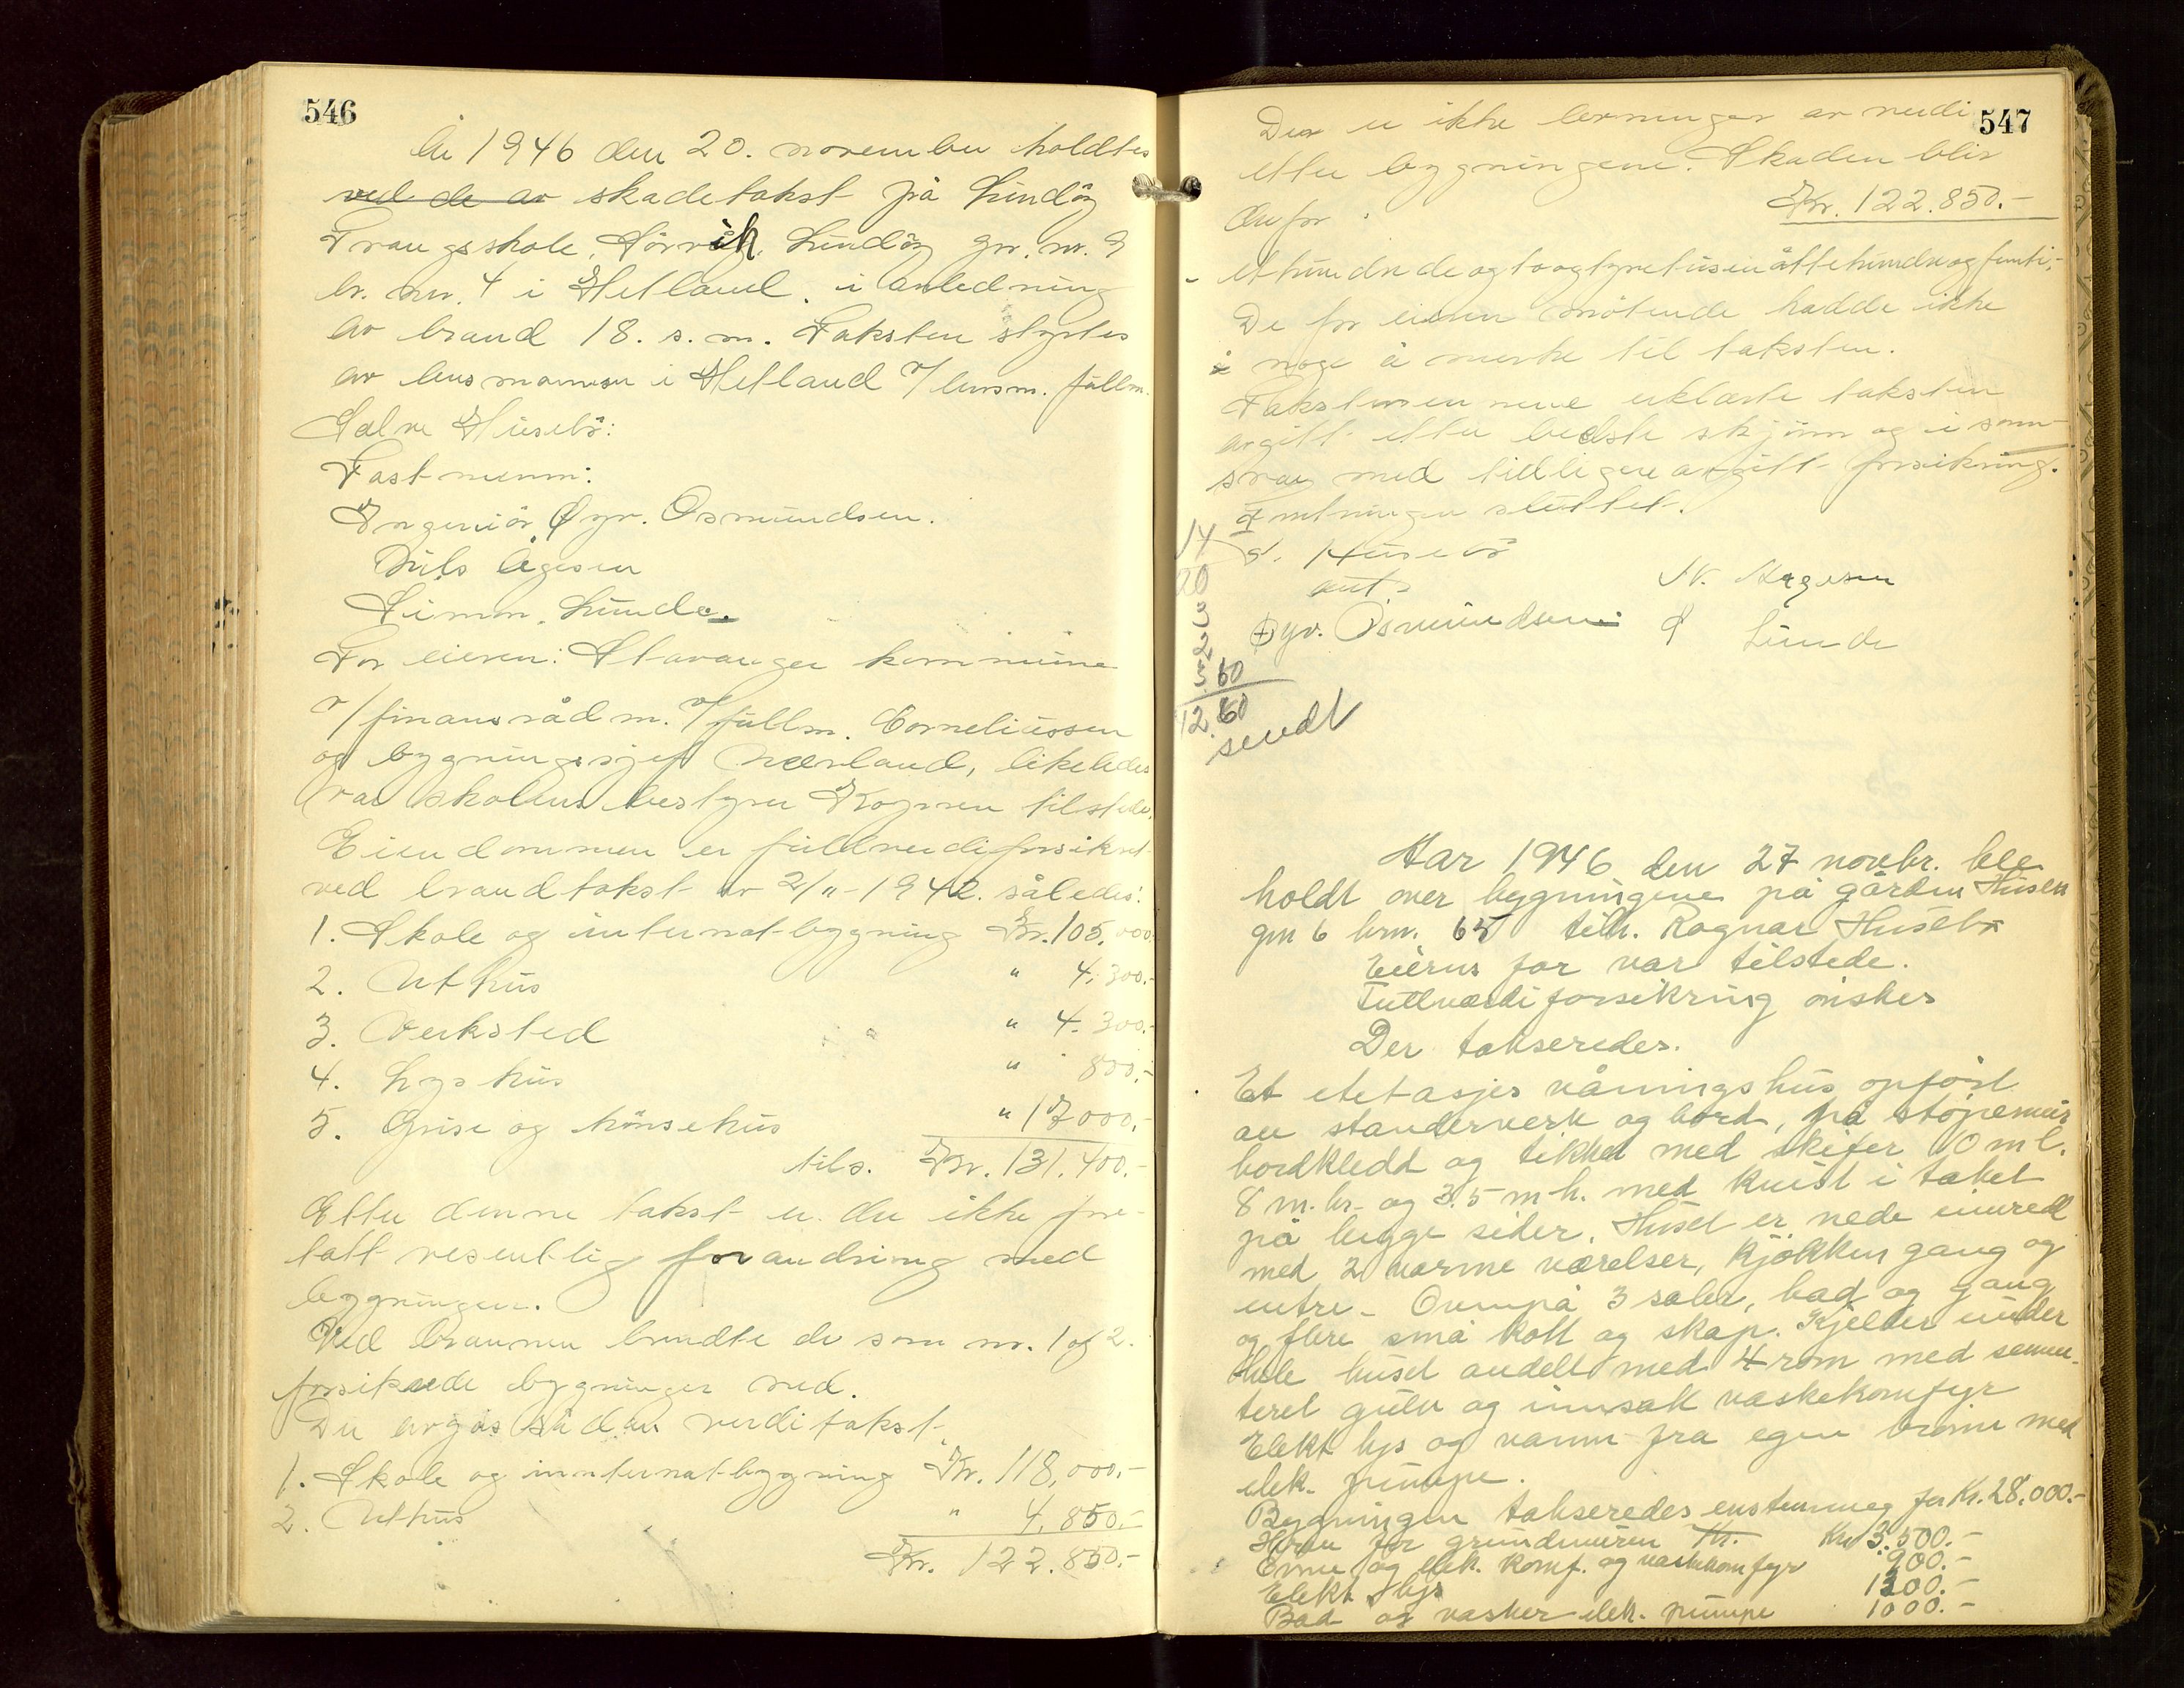 546
År 1946 den 20. november holdtes
ved de av skadetakst på Lindøy
Tvangsskole, Sørvik, Lindøy gr. nr. 9
br. nr. 4 i Hetland. i anledning
av brand 18. s. m. Taksten styrtes
av lensmannen i Hetland v/ lensm. fullm.
Salve Husebö:
Fast menn:
Ingeniör Øyv. Osmundsen.
Nils Ågesen
Simon Lunde.
For eieren: Stavanger kommune
v/ finansrådm. v/ fullm. Corneliussen
og bygningssjef Nærland, likeledes
var skolens bestyrer tilstede.
Eiendommen er fullverdiforsikret
ved brandtakst av 2/11-1942. således:
1. Skole og internat-bygning Kr. 105.000.-
2. Uthus " 4.300.-
3. Verksted " 4.300.-
4. Lyshus " 800.-
5. Grise og hönsehus " 17000.-
tils. Kr. 131.400.-
Etter denne takst er der ikke fore-
tatt vesentlig forandring med
bygningen.
Ved brannen brendte de som nr. 1 og 2.
forsikrede bygninger ned.
Der avgås sådan verditakst.
1. Skole og innternat-bygning Kr. 118,000.-
2. Uthus " 4.850.-
Kr. 122.850.-
547
Der er ikke levninger av verdi
etter bygningene. Skaden blir
Kr. 122.850.-
derfor
- ethundrede og to og tyvetusen åttehundre og femti.-
De for eieren møtende hadde ikke
noge å merke til taksten.
Takstmennene erklærte taksten
avgitt etter bedste skjönn og i sam-
svar med tidligere avgitt forsikring.
Forretningen sluttet.
S. Husebö
aut.
N. Aagesen
Øyv. Osmundsen S Lunde
14
20
3
2
3.60
12.60
sendt
Aar 1946 den 27 novebr. ble
holdt over bygningene på gården Husebø
gn 6 brn. 65 tilh. Ragnar Husebø
Eierns far var tilstede.
Fullverdiforsikring önskes
Der takseredes.
Et etetasjes våningshus opført
av standerverk og bord, på støpemur
bordkledd og tekket med skifer 10 m l.
8 m. br. og 3.5 m h. med kvist i taket
på begge sider. Huset er nede innred
med 2 varme værelser, kjøkken gang og
entre - Ovenpå 3 saler, bad og gang
og flere små kott og skap. Kjelder under
hele huset andelt med 4 rom med semen-
teret gulv og innsatt vaskekomfyr
Elekt lys og vann fra egen brønn med
elek. pumpe.
Bygningen takseredes enstemmeg for Kr. 28.000.-
Herav for grundmuren Kr. Kr 3.500.-
Ovne og elek. komf. og vaskekomfyr 900.-
Elekt lys 1200.-
Bad og vasker elek. pumpe 1000.-